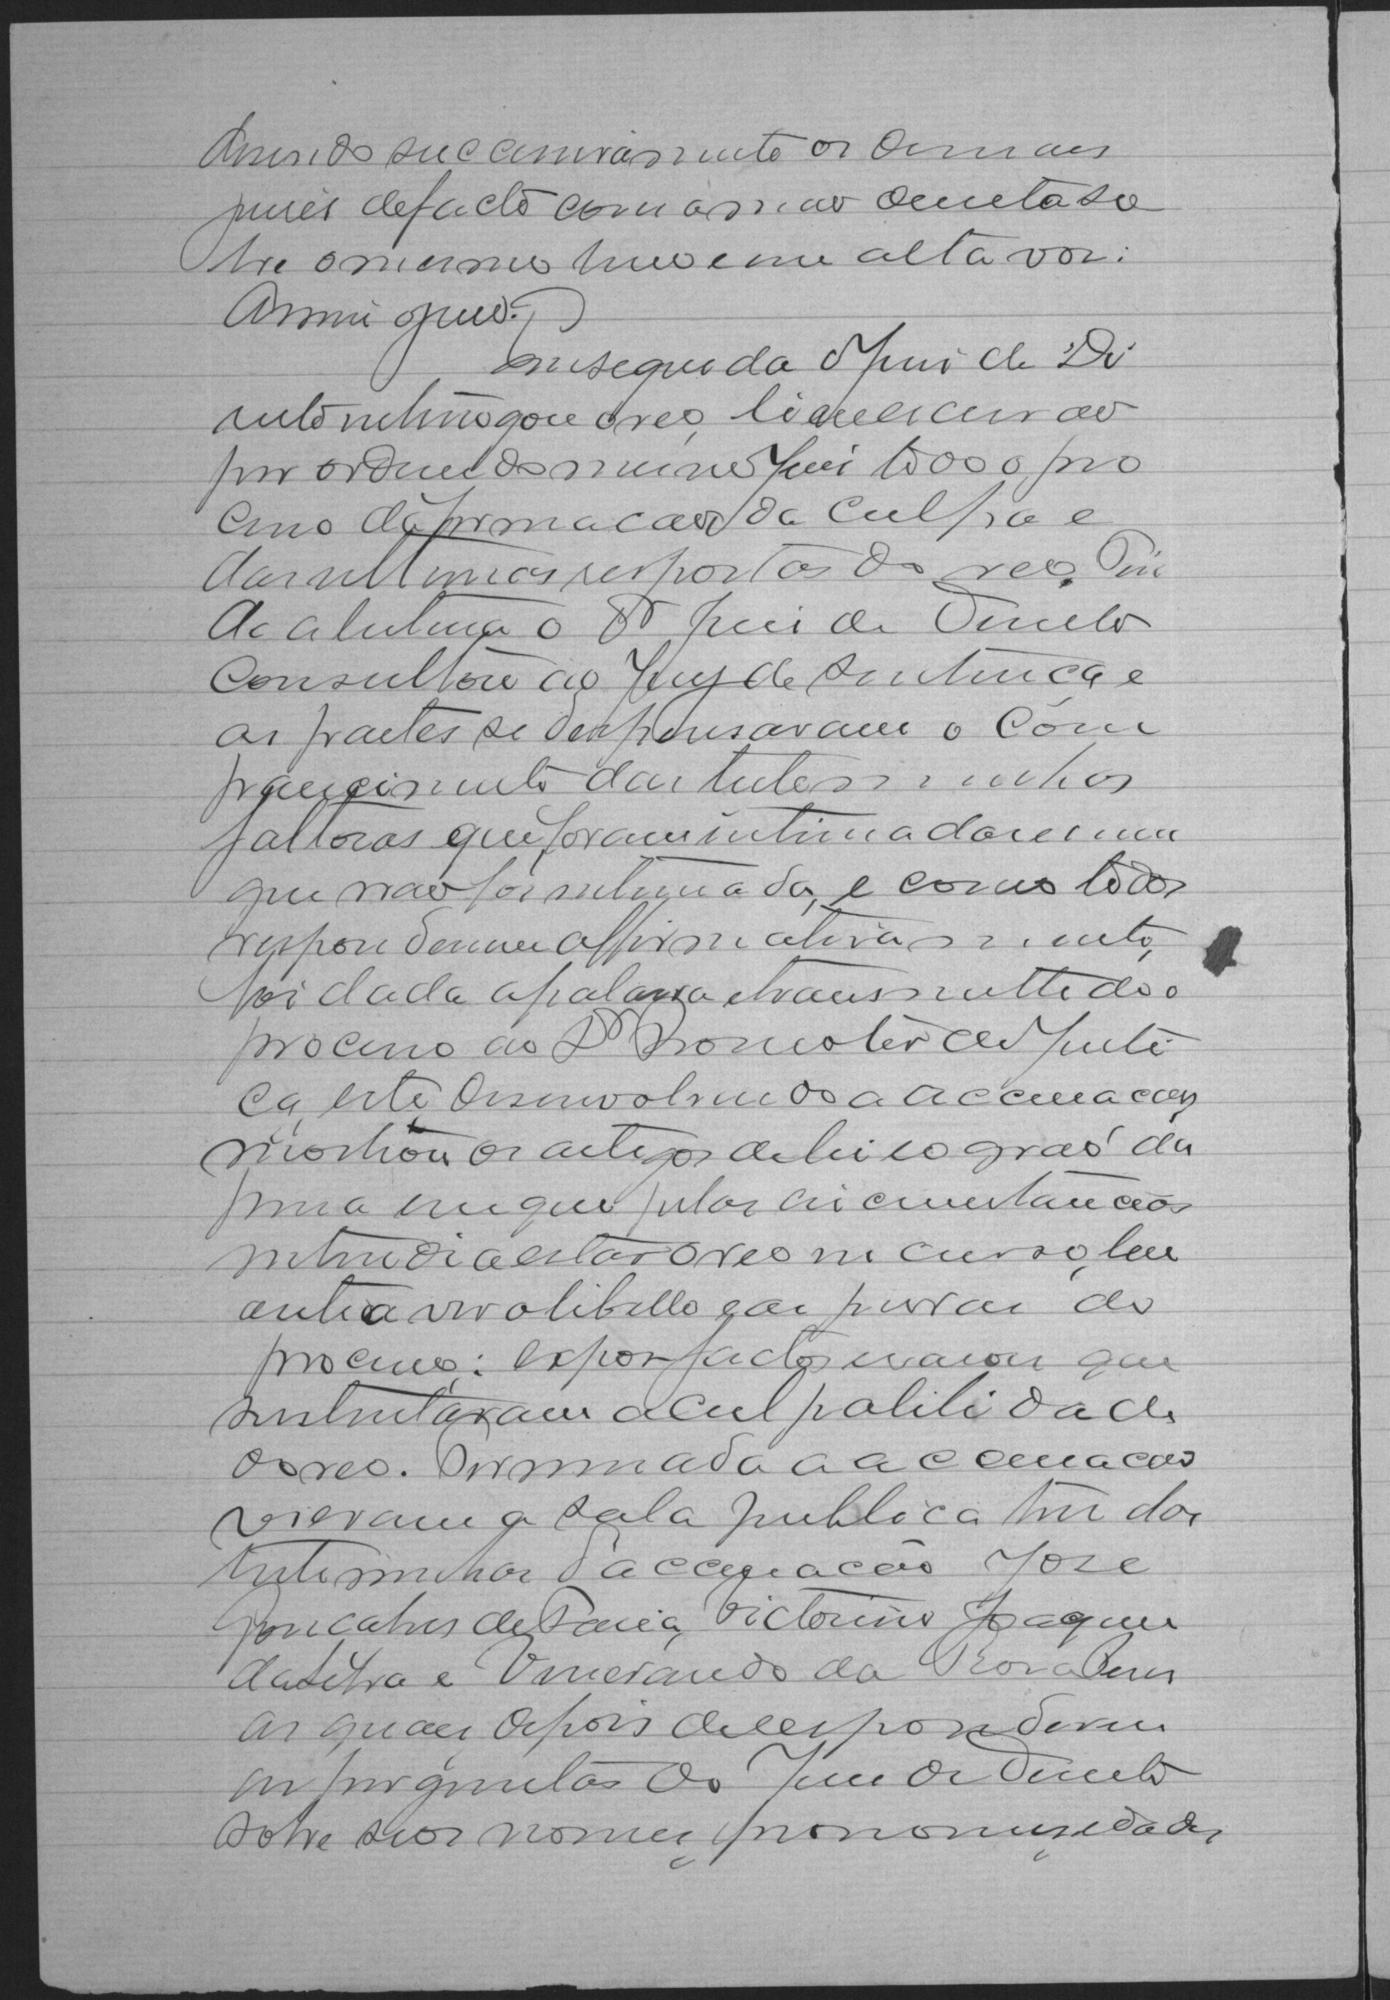 dizendo successivamente os demais
juises de facto com a mão direita so
bre o mesmo livro e em alta voz:
Assim o juro.
Em seguida o Juiz de Di
reito interrogou o reo, li eu escrivão
por ordem do mesmo Juiz todo o pro
cesso da formação da culpa e
das ultimas respostas do reo. Fin
da a leitura o Dr Juiz de Direito
consultou ao Jury de sentença e
as partes se dispensavam o com
parecimento das testemunhas
faltosas que foram intimadas e uma
que não foi intimada, e como todos
respondessem affirmativamente,
foi dada a palavra e transmittido o
processo ao Dr Promotor da Justi
ça, este, desenvolvendo a accusação
mostrou os artigos da lei e o grao da
pena em que pelas circumstancias
entendia estar o reo incurso, leu
outra vez o libello e as provas do
processo: expos factos e rasões que
sustentavam a culpabilidade
do reo. Terminada a accusação
vieram a sala publica tres das
testemunhas d'accusação Jose
Gonçalves de Faria, Victorino Joaquim
da Silva e Venerando da Rosa
as quaes depois de responderem
as perguntas do Juiz de Direito
sobre seos nomes, pronomes, idades,